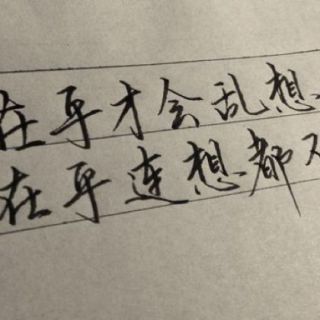 在乎才会乱想
在乎连想都不